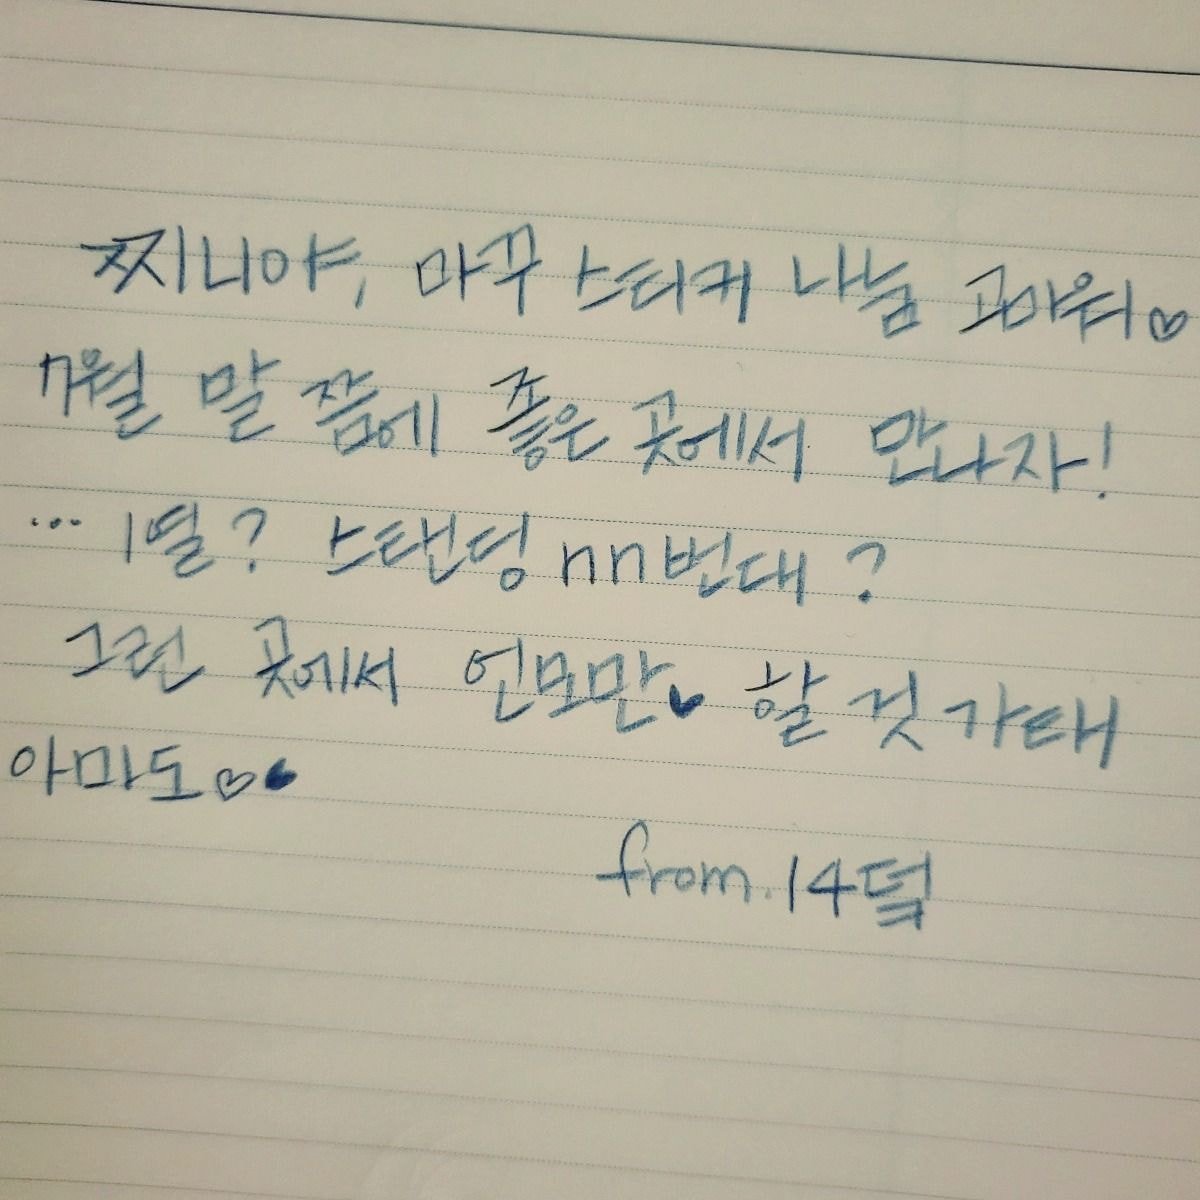 찌니야, 마꾸 스티커 나눔 고마워♡
7월 말 쯤에 좋은 곳에서 만나자!
… 1열? 스탠딩 nn번대?
그런 곳에서 언모만♥ 할 것 가태
아마도♡
from. 14덬